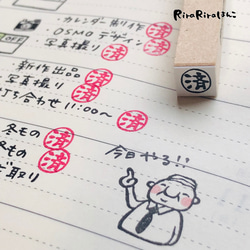 RiraRiraはんこ
・カレンダー制作 済
・OSMOデザイン 済
写真撮り 済
新作出品 済
写真撮り 済
打ち合わせ 11:00〜
冬もの 済
もの 済
取り 済
済
今日やる!!